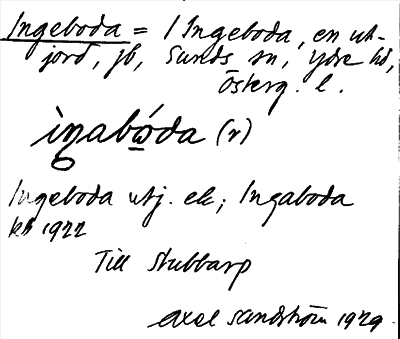 Ingeboda = 1 Ingeboda, en ut-
jord, jb, Sunds sn, Ydre hd,
Österg. l.
ìŋabώda (r)
Ingeboda utj. ek; Ingaboda
kb 1922
Till Stubbarp
Axel Sandström 1929.